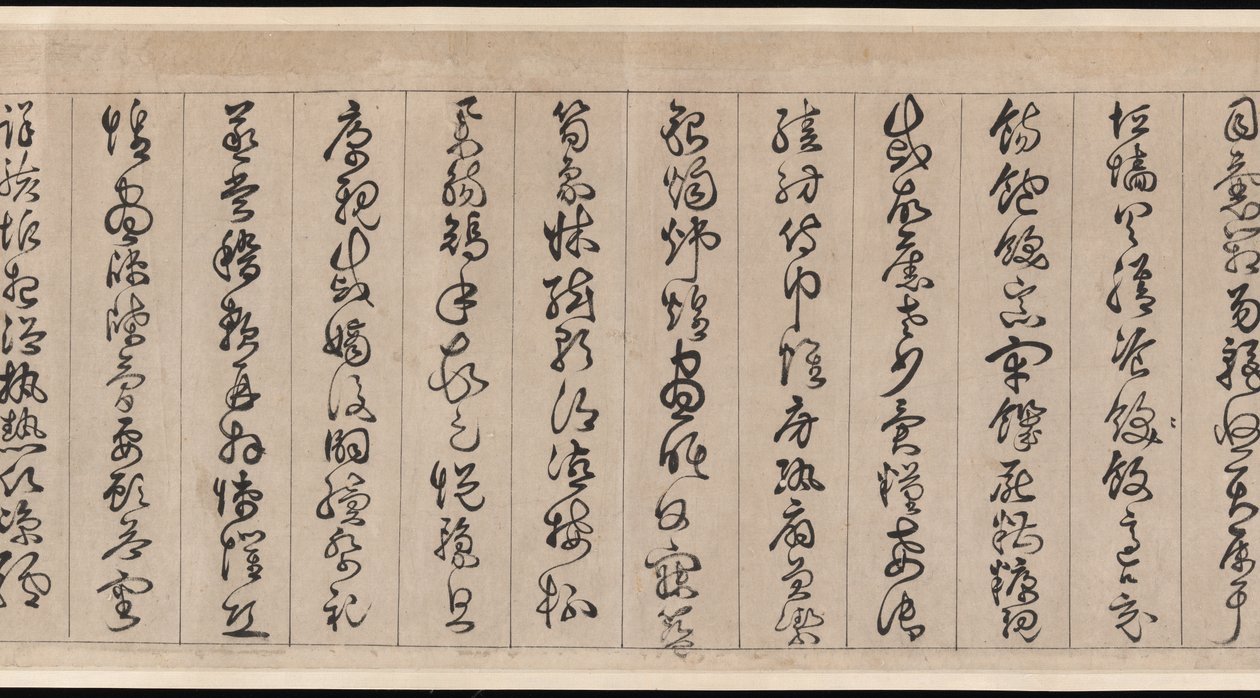 目囊箱易輶攸畏屬耳
垣墻具膳湌飫飯適口充
腸飽飫烹宰饑厭糟糠親
戚故舊老少異糧妾御
績紡侍巾帷房紈扇圓潔
銀燭煒煌晝眠夕寐籃
筍象牀絃歌酒讌接杯
舉觴矯手頓足悅豫且
康親戚嫡後嗣續祭祀
蒸嘗稽顙再拜悚懼恐
惶晝牋牒簡要顧答審
詳骸垢想浴執熱願涼驢